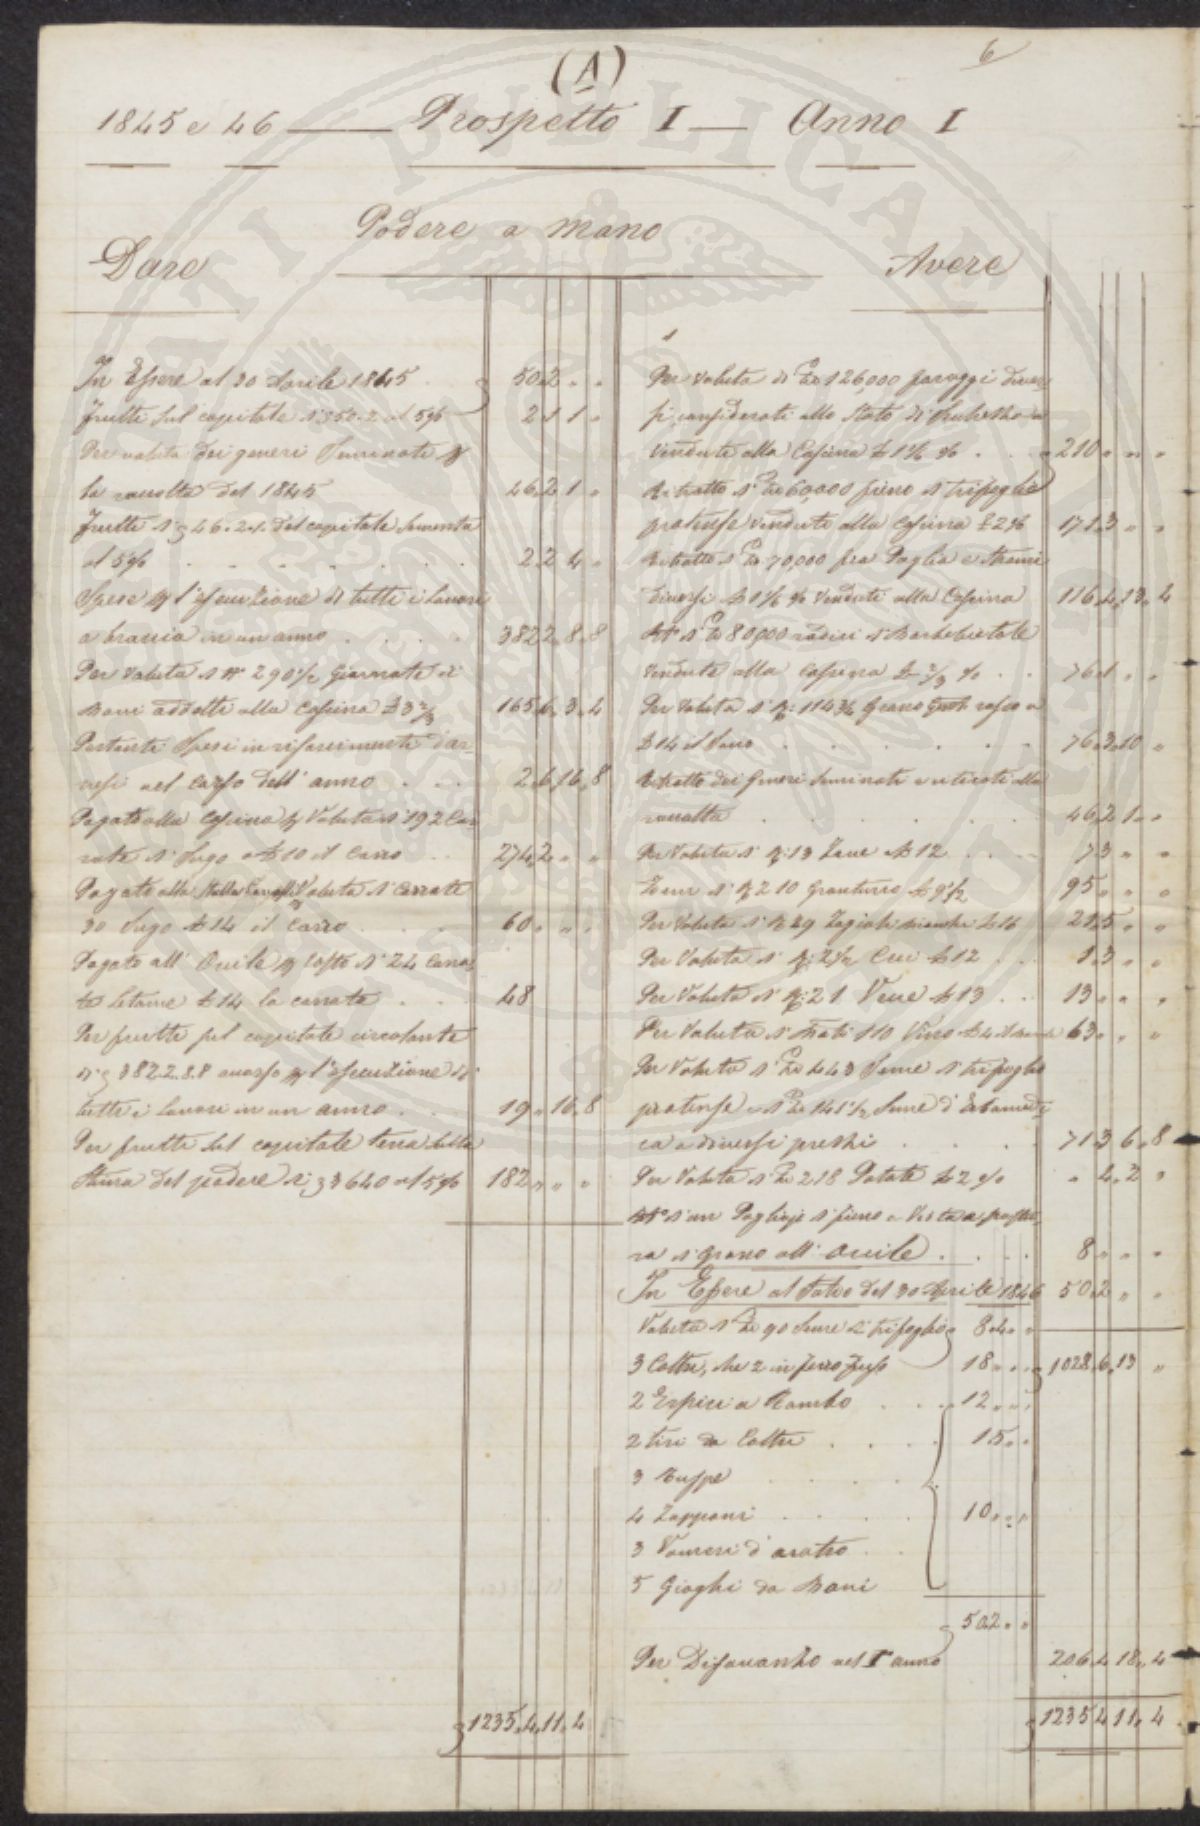 (A)
6
1845 e 46 — Prospetto I — Anno I
Podere a mano
Dare
In Essere al 30 Aprile 1845 50.2 „ „
frutti sul capitale di 350.2 al 5% 2.1 1 „
Per valuta dei generi Seminati p
la raccolta del 1845 46.2 1 „
frutti di 46.2.1. del capitale sementa
al 5% 2.2 4 „
Spese p l'esecuzione di tutti i lavori
a braccia in un anno 382 2.8.8
Per valuta di N° 290½ Giornate di
Bovi addetti alla Cascina 3⅔ 165.6.3.4
Pertanti Spesi in rifacimenti d'ar-
nesi nel corso dell'anno 2.6 16.8
Pagato alla Cascina p Valuta di 192 Car-
rate di Sugo a 10 il Carro 274.2 „ „
Pagato alla Stalla Cavalli p Valuta di Carrate
30 Sugo 14 il Carro 60 „ „ „
Pagato all'Ovile p costo di 24 Carra-
te letame 14 la carrata 48
Per frutti sul capitale circolante
di 382.2.8.8 avanzo p l'esecuzione di
tutti i lavori in un anno 19 „ 16.8
Per frutti sul capitale terra dalla
Stima del podere di 3640 al 5% 182 „ „ „
1235.4.11.4
Avere
Per valuta di 126,000 foraggi diver-
si considerati allo stato di
vendute alla Cascina 1⅙ % 210 „ „ „
Ritratto di 60,000 fieno di trifoglio
pratense venduti alla Cascina 2% 171.3 „ „
Ritratto di 70,000 fra Paglia e Strami
diversi 1⅙ % venduti alla Cascina 116.4.13.4
di 80,000 radici di Barbebietole
vendute alla Cascina ⅔ % 76.1 „ „
Per valuta di 114¾ Grano
14 il Sacco 76.3.10 „
Ritratto dei generi seminati e ritirati alla
raccolta 46.2 1 „ „
Per Valuta di 13 Fave 12 73 „ „
di 210 granturco 9½ 95 „ „ „
Per Valuta di 49 Fagioli bianchi 16 21.5 „ „
Per Valuta di 2½ Ceci 12 1.3 „ „
Per Valuta di 21 Vecce 13 13 „ „ „
Per Valuta di Bati 110 Vino 4 63 „ „ „
Per Valuta di 443 Seme di trifoglio
pratense e di 141½ Seme d'Erbamedi-
ca a diversi prezzi 71.3 6.8
Per Valuta di 218 Patate 2% „ 4.2 „
di un Pagliajo di fieno
di grano all'Ovile 8 „ „ „
In Essere al Saldo del 30 Aprile 1846 50.2 „ „
Valuta di 90 Seme di trifoglio 8.4 „ „
3 Coltri, che 2 in ferro fuso 18 „ „ 1028.6.13 „
2 Erpici a Rombo 12 „ „
2 tiri da Coltri 15 „ „
3 Zuppe
4 Zapponi 10 „ „
3 Vomeri d'aratro
5 Gioghi da Bovi
50.2 „ „
Per Disavanzo nel I° anno 206.4 18.4
1235 4 11.4